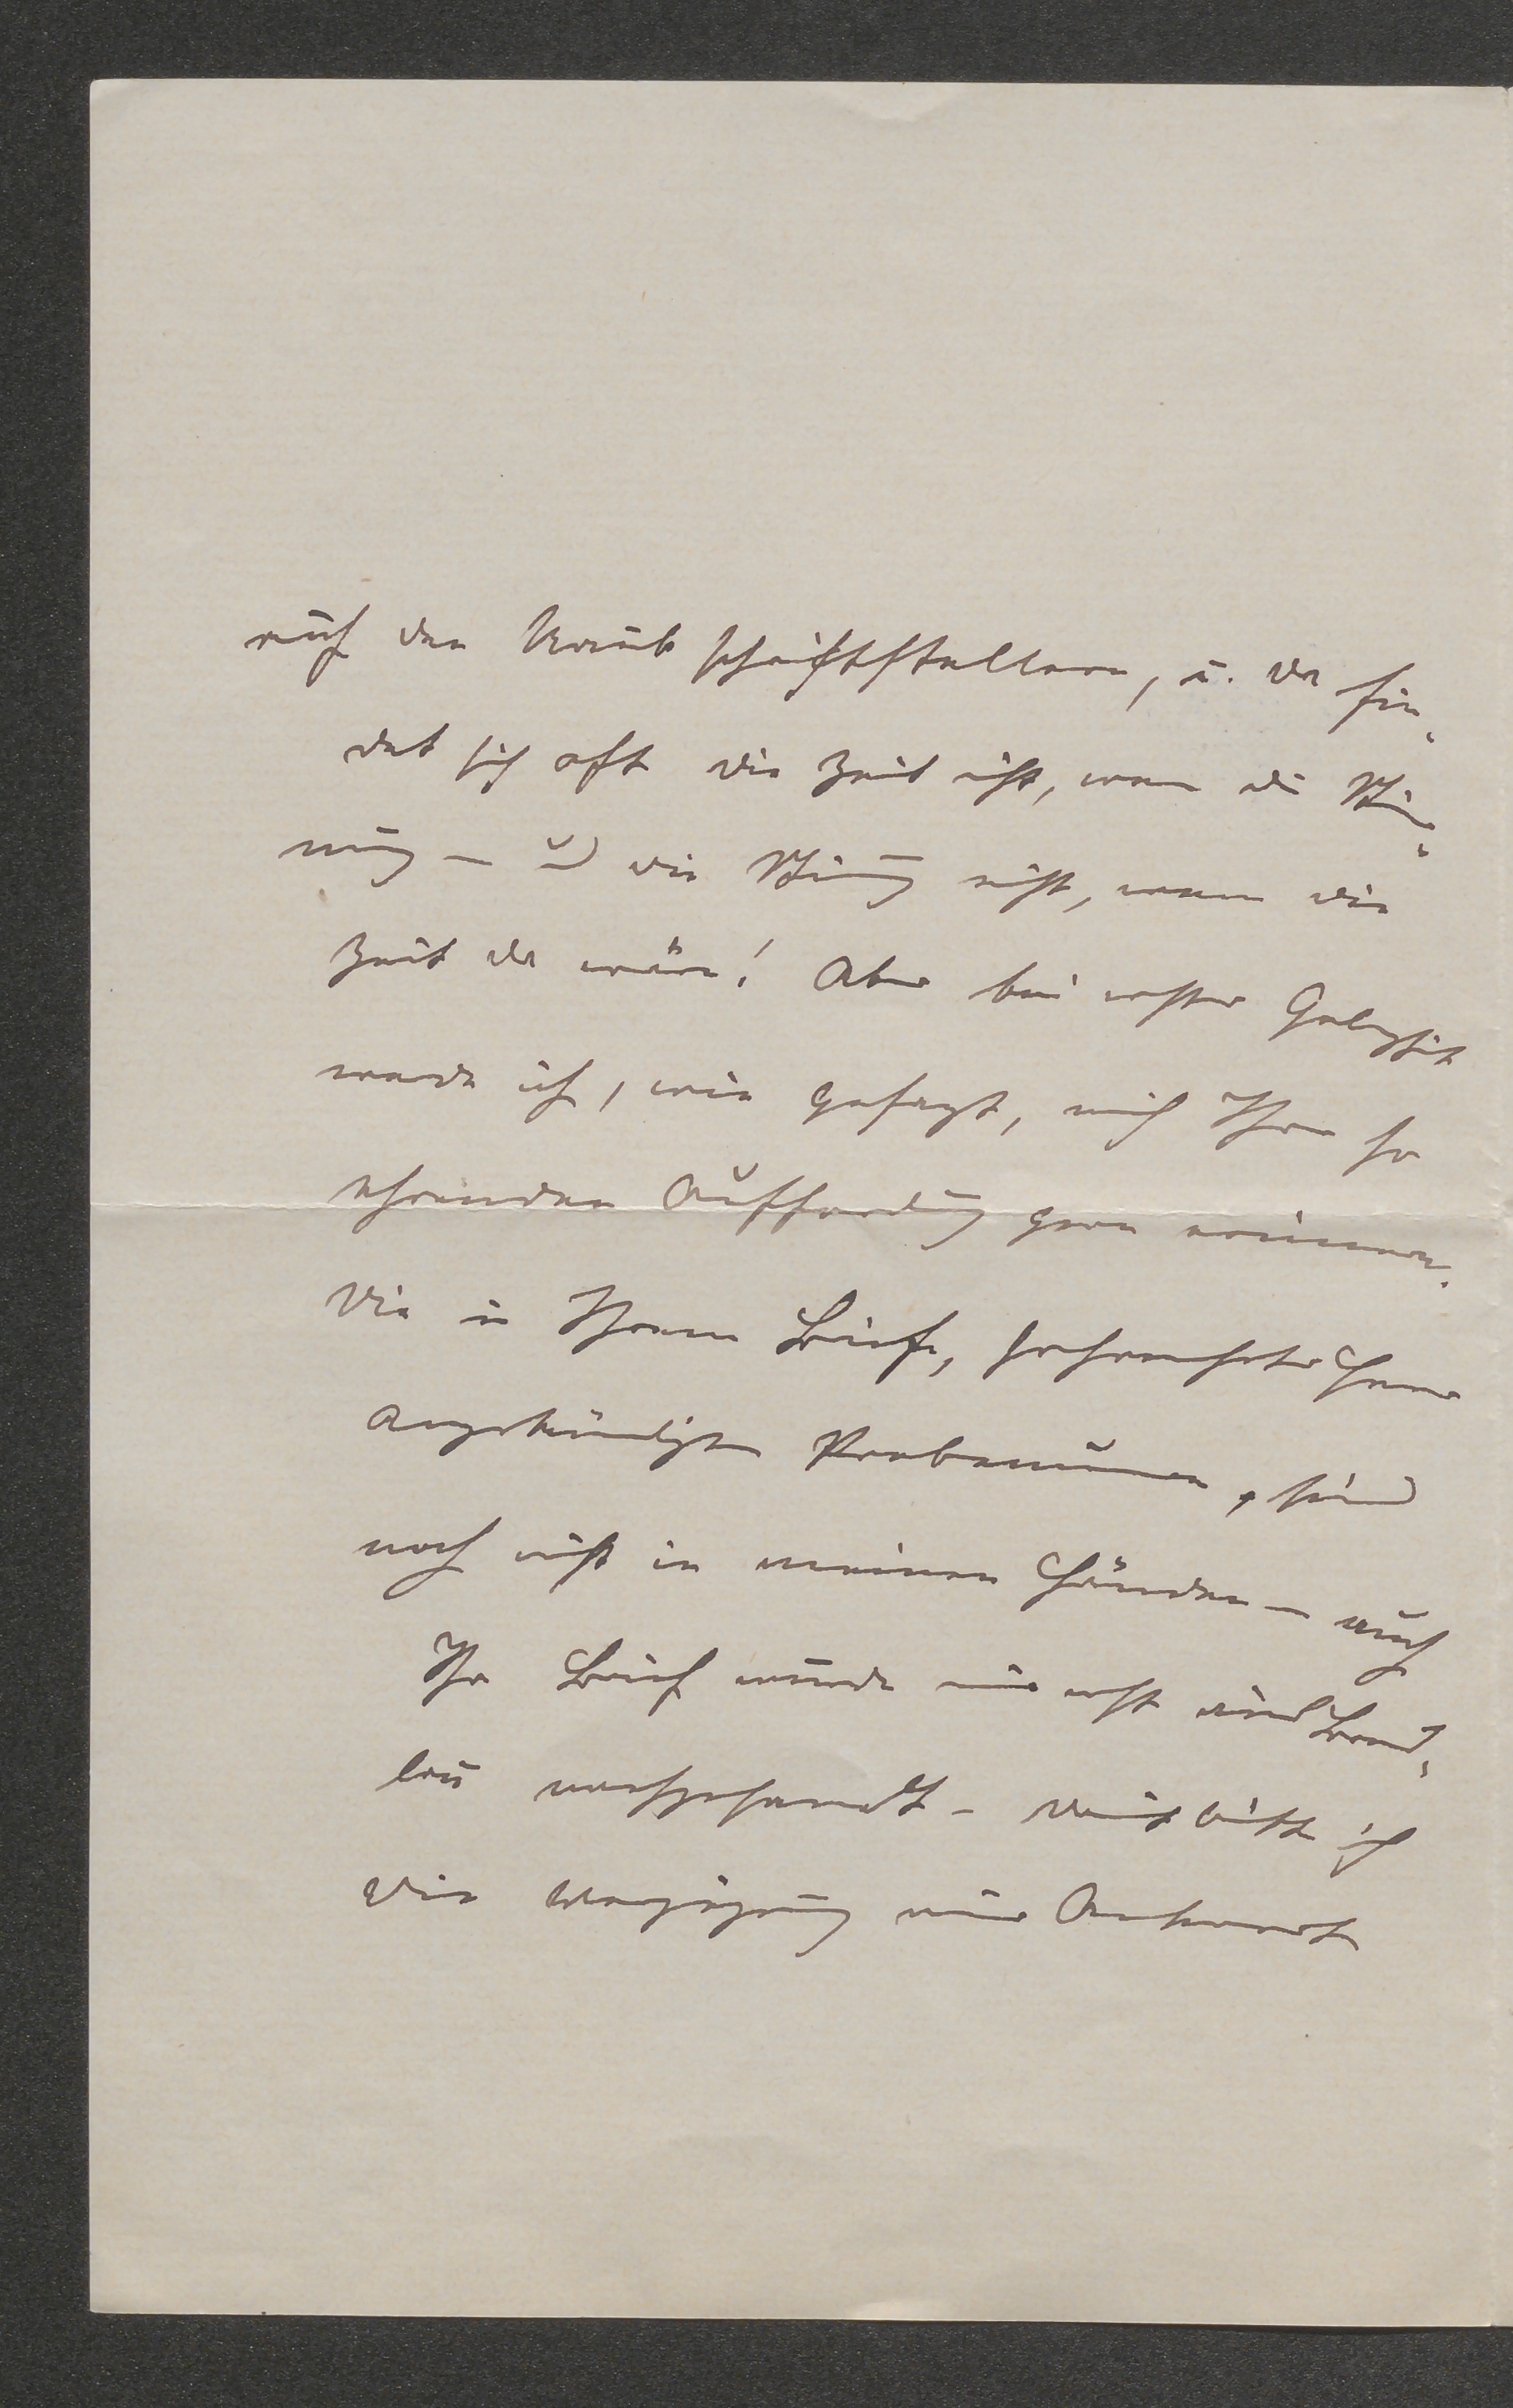 auf den Raub schriftstellern, u. da fin-
det sich oft die Zeit nicht, wenn die Stim-
mung – und die Stimmung nicht, wenn die
Zeit da wäre! Aber bei erster Gelegenheit
werde ich, wie gesagt, mich Ihrer so
ehrenden Aufforderung gern erinnern.
Die in Ihrem Briefe, hochverehrter Herr
angekündigten Probenummern, sind
noch nicht in meinen Händen – auch
Ihr Brief wurde mir erst aus Bres-
lau nachgesandt – damit bitte ich
die Verzögerung meiner Antwort